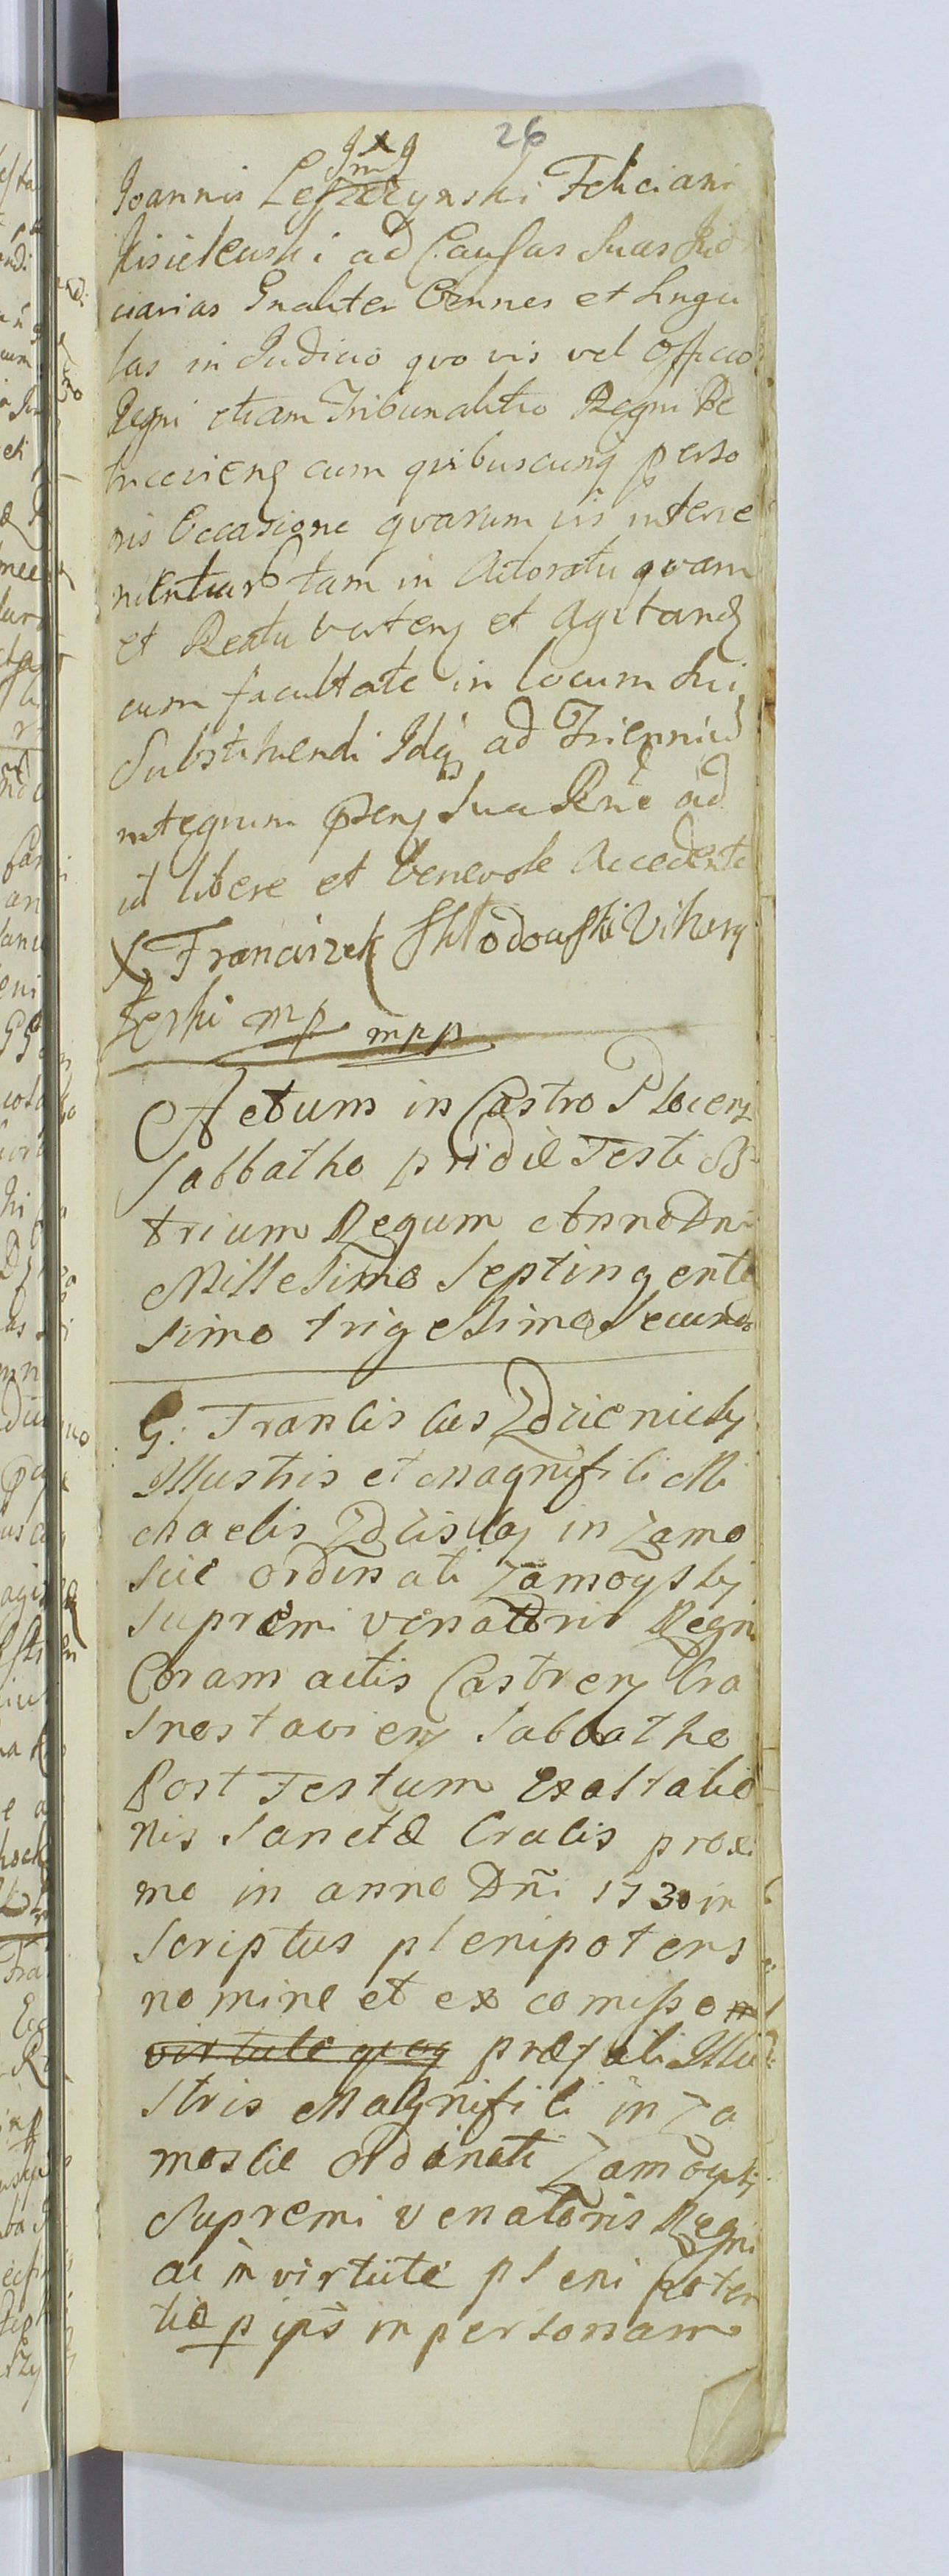 26
Joannis Leszczynski Feliciani
Kisielewski ad Causas Suas Judi
ciarias Gnaliter Omnes et Singu
las in Judicio quo vis vel Officio
Regni etiam Tribunalitio Regni Pe
tricovien cum quibuscunq perso
nis Occasione quarum vis interve
nientiar tam in Actoratu quam
et Reatu verten et Agitand
cum facultate in locum Sui
Substituendi Idq ad Trienniu
integrum psens Sua Rne ad
id libere et benevole Accedente
X Franciszek Skłodowski Wikery
ski mp mpp
Actum in Castro Plocen
Sabbatho pridie Festi SS
trium Regum Anno Dni
Millesimo Septingente
simo trigessimo Secundo
G: Franciscus Zdzienicky
Illustris et Magnifici Mi
chaelis Zdzislay in Zamo
scie ordinati Zamoysky
Supremi venatoris Regni
Coram actis Castren Cra
snostavien Sabbatho
Post Festum Exaltatio
nis Sanctæ Crucis proxi
mo in anno Dñi 1730 in
scriptus plenipotens
nomine et ex comisso
virtute qcq præfati Illu
stris Magnifici in Za
moscie ordinati Zamoysky
Supremi venatoris Regni
ac in virtute pleni poten
tiæ p ips in personam